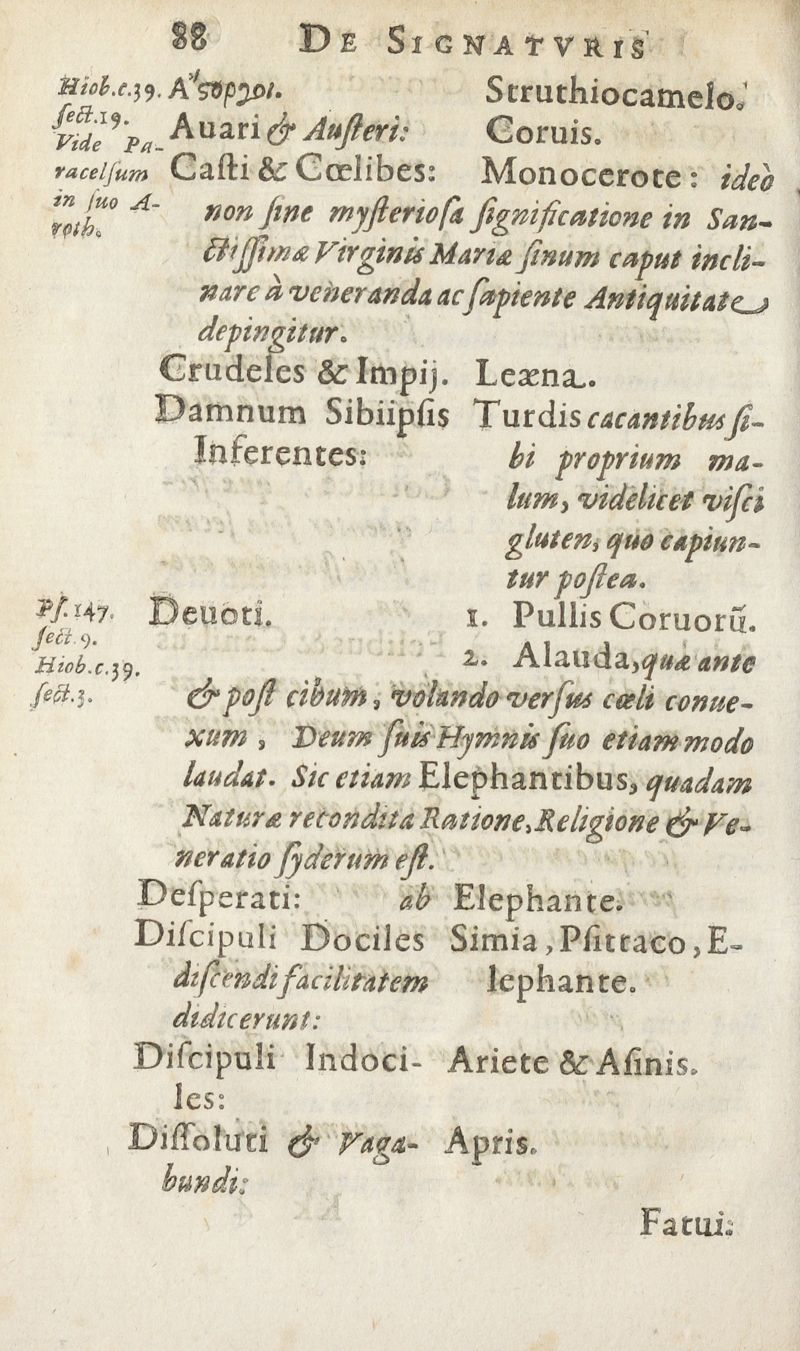 88 DE SIGNATVRIS
Hiob.c.39. Ἄςοργοι. Struthiocamelo.
sect.19.
Vide Pa- Auari & Austeri: Coruis.
racelsum Casti & Cœlibes: Monocerote: ideò
in suo A- non sine mysteriosa significatione in San-
roth.
ctissimæ Virginis Mariæ sinum caput incli-
nare à veneranda ac sapiente Antiquitate
depingitur.
Crudeles & Impij. Leæna.
Damnum Sibiipsis Turdis cacantibus si-
Inferentes: bi proprium ma-
lum, videlicet visci
gluten, quo capiun-
tur postea.
Ps.147. Deuoti. 1. Pullis Coruorū.
sect.9.
Hiob.c.39. 2. Alauda, quæ ante
sect.3. & post cibum, volando versus cœli conue-
xum, Deum suis Hymnis suo etiam modo
laudat. Sic etiam Elephantibus, quadam
Naturæ recondita Ratione, Religione & Ve-
neratio syderum est.
Desperati: ab Elephante.
Discipuli Dociles Simia, Psittaco, E-
discendi facilitatem lephante.
didicerunt:
Discipuli Indoci- Ariete & Asinis.
les:
Dissoluti & Vaga- Apris.
bundi:
Fatui: